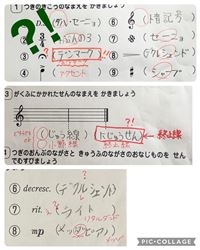 1 つぎのきごうのなまえを かきましょう
?!
D.S.(ダル・セーニョ)
⑥ (ト音記号)
② (ぶんの3)
⑦ (セーニョ)
③ (デンマーク)
⑧ (クレシェンド)
④ (
アクセント
⑨ (シャープ)
3 がくふにかかれたせんのなまえを かきましょう
?!
(じゅう線)
(にじゅうせん)
終止線
小節線
終止線
4 つぎのおんぷのながさと きゅうふのながさのおなじものを せん
でむすびましょう
?!
⑥ decresc. (デクレシェンド)
⑦ rit. (ライト)
リタルダンド
⑧ mp (メッゾピアノ)
PIC・COLLAGE